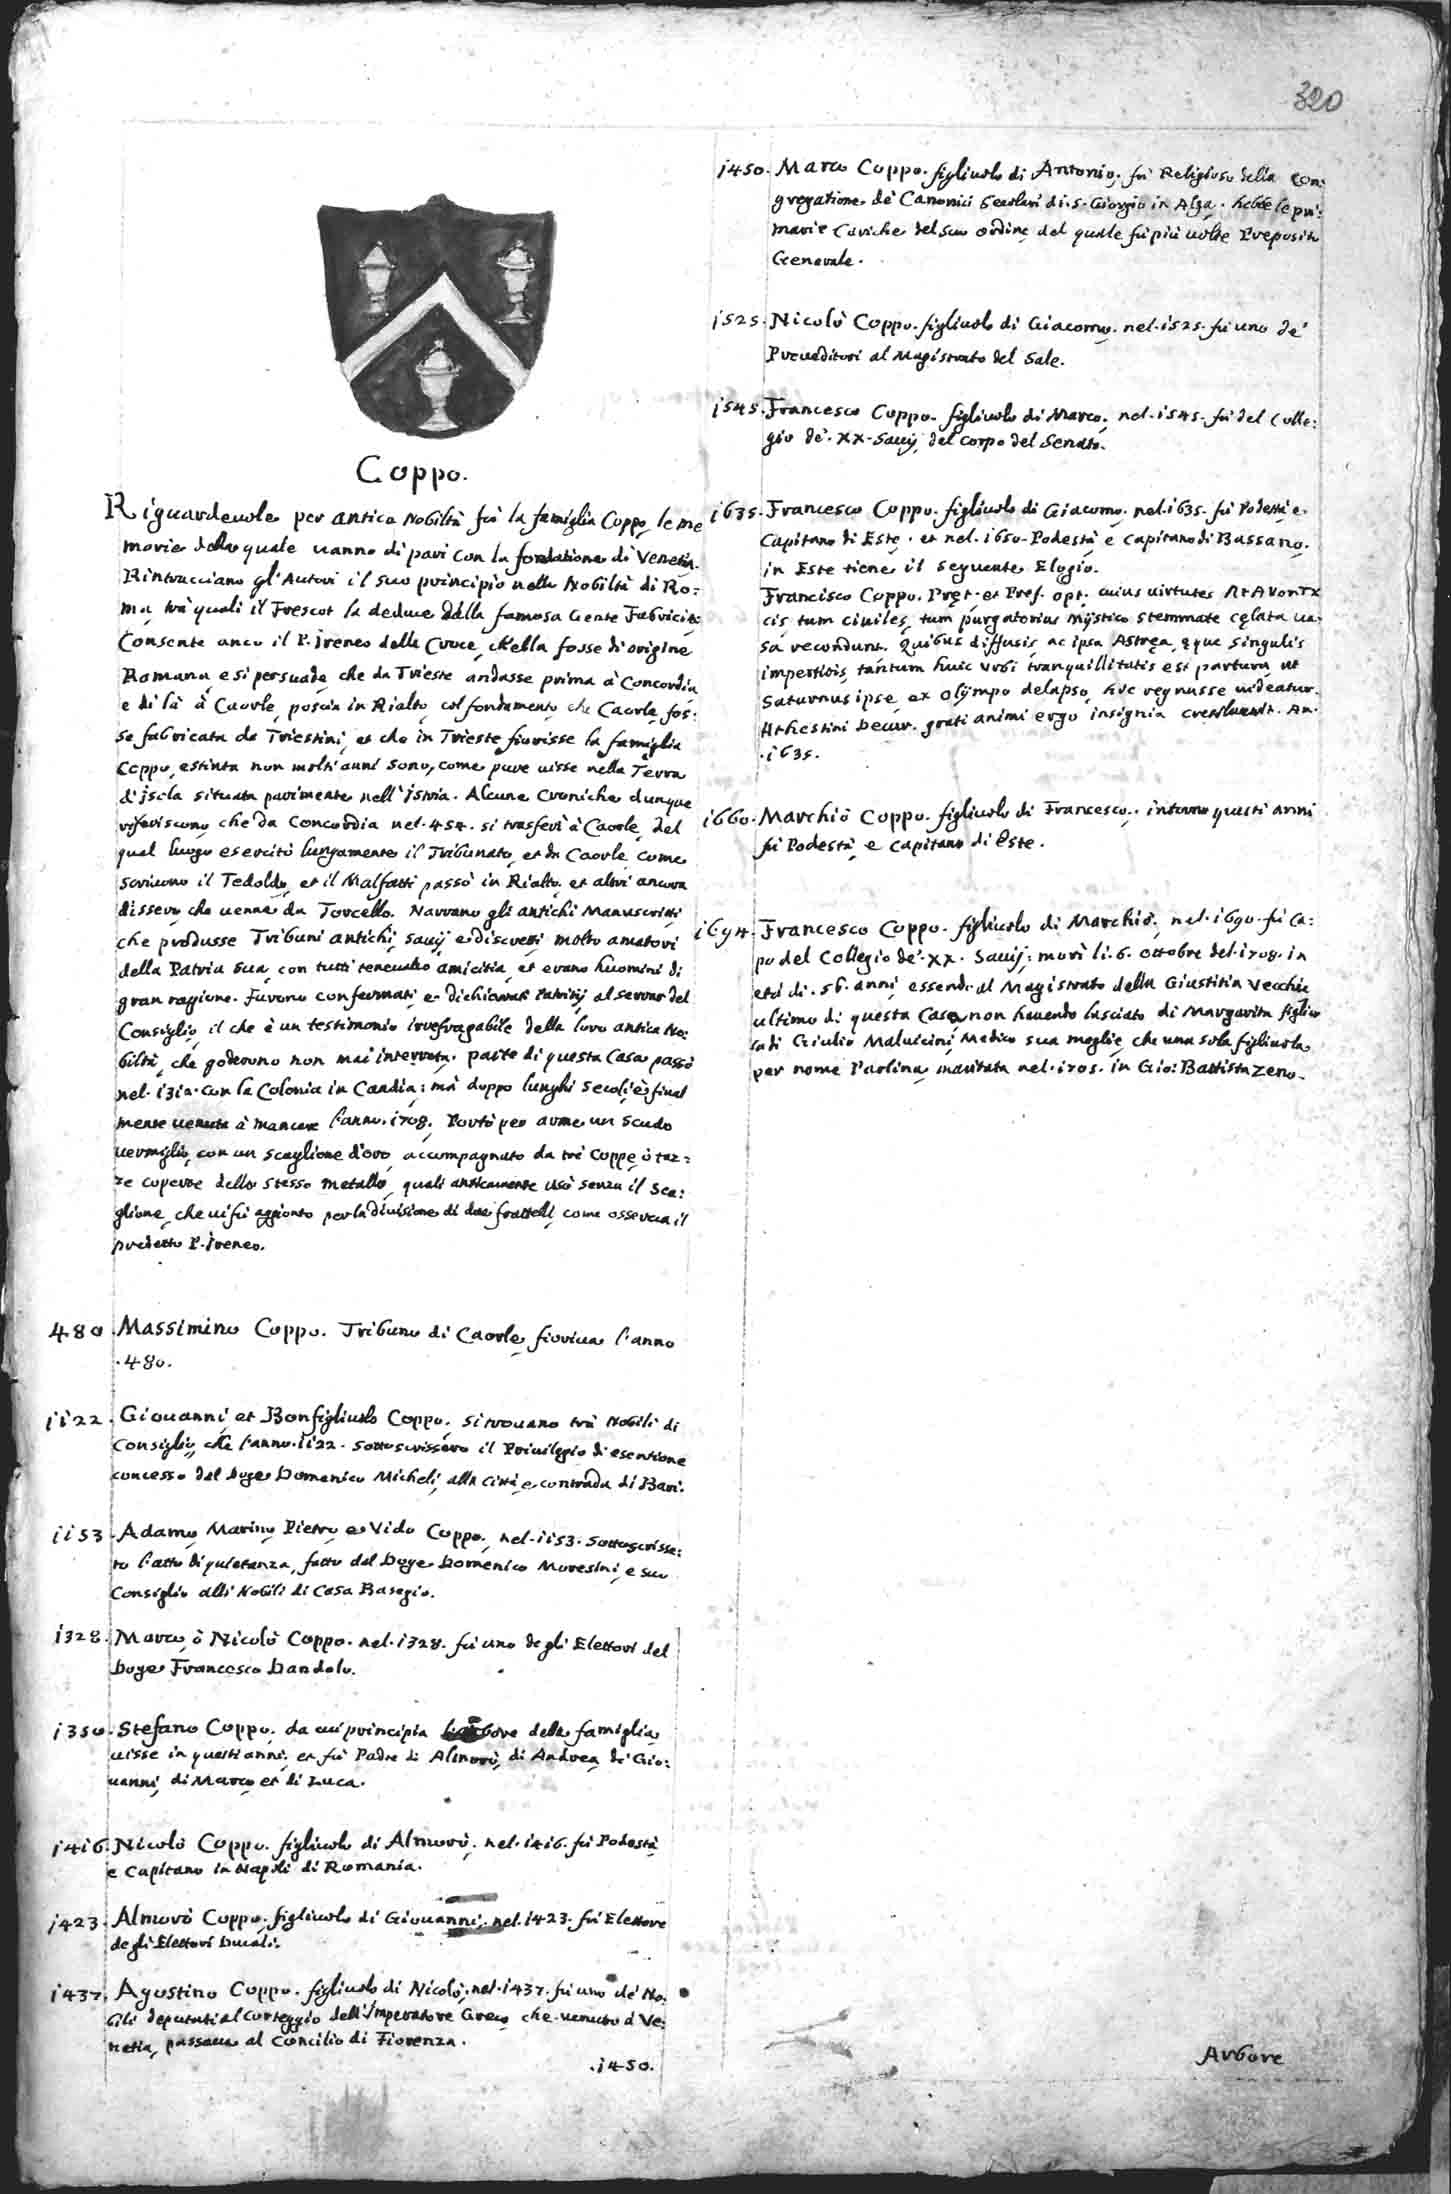 320
Coppo.
Riguardeuole per antica Nobiltà fù la famiglia Coppo, le me
morie della quale uanno di pari con la fondatione di Venetia.
Rintracciano gl'Autori il suo principio nella Nobiltà di Ro:
ma, trà quali il Frescot la deduce dalla famosa Gente Fabricia:
Consente anco il P. Ireneo della Croce, ch'ella fosse di origine
Romana, e si persuade, che da Trieste andasse prima à Concordia,
e di là à Caorle, poscia in Rialto, col fondamento, che Caorle fos:
se fabricata da Triestini, et che in Trieste fiorisse la famiglia
Coppo, estinta non molti anni sono, come pure uisse nella Terra
d'Isola situata parimente nell'Istria. Alcune Croniche dunque
riferiscono, che da Concordia nel. 454. si trasferì à Caorle, del
qual luogo esercitò lungamente il Tribunato, et da Caorle, come
scriuono il Tedoldo, et il Malfatti passò in Rialto, et altri ancora
dissero, che uenne da Torcello. Narrano gli antichi Manuscritti
che produsse Tribuni antichi, sauij e discretti, molto amatori
della Patria sua, con tutti teneuano amicitia, et erano huomini di
gran ragione. Furono confermati, e dichiarati Patritij al serrar del
Consiglio, il che è un testimonio irrefragabile della loro antica No:
biltà, che goderono non mai interrotta. parte di questa Casa passò
nel. 1312. con la Colonia in Candia; mà doppo lunghi secoli è final
mente uenuta à mancare l'anno. 1708. Portò per arme un Scudo
uermiglio, con un scaglione d'oro, accompagnato da tre Coppe, ò taz:
ze coperte dello stesso metallo, quali anticamente usò senza il Sca:
glione, che ui fù aggionto per la diuisione di due fratelli, come osserua il
predetto P. Ireneo.
480. Massimino Coppo. Tribuno di Caorle, fioriua l'anno
.480.
1122. Giouanni, et Bonfigliuolo Coppo. si trouano trà Nobili di
Consiglio, che l'anno. 1122. sottoscrissero il Priuilegio di esentione
concesso dal Doge Domenico Micheli, alla Città, e contrada di Bari.
1153. Adamo, Marino, Pietro, e Vido Coppo. nel. 1153. sottoscrisse:
ro l'atto di quietanza, fatto dal Doge Domenico Moresini, e suo
Consiglio alli Nobili di Casa Basegio.
1328. Marco, ò Nicolò Coppo. nel. 1328. fù uno degli Elettori del
Doge Francesco Dandolo.
1350. Stefano Coppo. da cui principia l'arbore della famiglia,
uisse in questi anni, et fù Padre di Almorò, di Andrea, di Gio:
uanni, di Marco, et di Luca.
1416. Nicolò Coppo. figliuolo di Almorò. nel. 1416. fù Podestà
e Capitano in Napoli di Romania.
1423. Almorò Coppo. figliuolo di Giouanni. nel. 1423. fù Elettore
degli Elettori Ducali.
1437. Agostino Coppo. figliuolo di Nicolò. nel. 1437. fù uno de' No:
bili deputati al Corteggio dell'Imperatore Greco, che uenuto à Ve:
netia, passaua al Concilio di Fiorenza.
.1450.
1450. Marco Coppo. figliuolo di Antonio. fù Religioso della Con:
gregatione de' Canonici Secolari di. S. Giorgio in Alga. hebbe le pri:
marie Cariche del suo ordine, del quale fù più uolte Preposito
Generale.
1525. Nicolò Coppo. figliuolo di Giacomo. nel. 1525. fù uno de'
Proueditori al Magistrato del Sale.
1545. Francesco Coppo. figliuolo di Marco. nel. 1545. fù del Colle:
gio de'. XX. Sauij, del corpo del Senato.
1635. Francesco Coppo. figliuolo di Giacomo. nel. 1635. fù Podestà e
Capitano di Este. et nel. 1650. Podestà e Capitano di Bassano.
in Este tiene il seguente Elogio.
Francisco Coppo. Pręt. et Pref. opt. cuius uirtutes
cis, tum ciuiles, tum purgatorias mystico stemmate cęlata ua:
sa recondunt. Quibus diffusis, ac ipsa Astręa, ęque singulis
impertitis, tantum huic Vrbi tranquillitatis est partum, ut
Saturnus ipse, ex Olympo delapso, huc regnasse uideatur.
Athestini Decur. grati animi ergo insignia An.
.1635.
1660. Marchiò Coppo. figliuolo di Francesco. intorno questi anni
fù Podestà, e Capitano di Este.
1694. Francesco Coppo. figliuolo di Marchiò. nel. 1690. fù Ca:
po del Collegio de'. XX. Sauij: morì li. 6. ottobre del. 1708. in
età di. 56. anni, essendo al Magistrato della Giustitia Vecchia
ultimo di questa Casa, non hauendo lasciato di Margarita figlio
la di Giulio Maluicini, Medico sua moglie, che una sola figliuola
per nome Paolina, maritata nel. 1705. in Gio: Battista Zeno.
Arbore